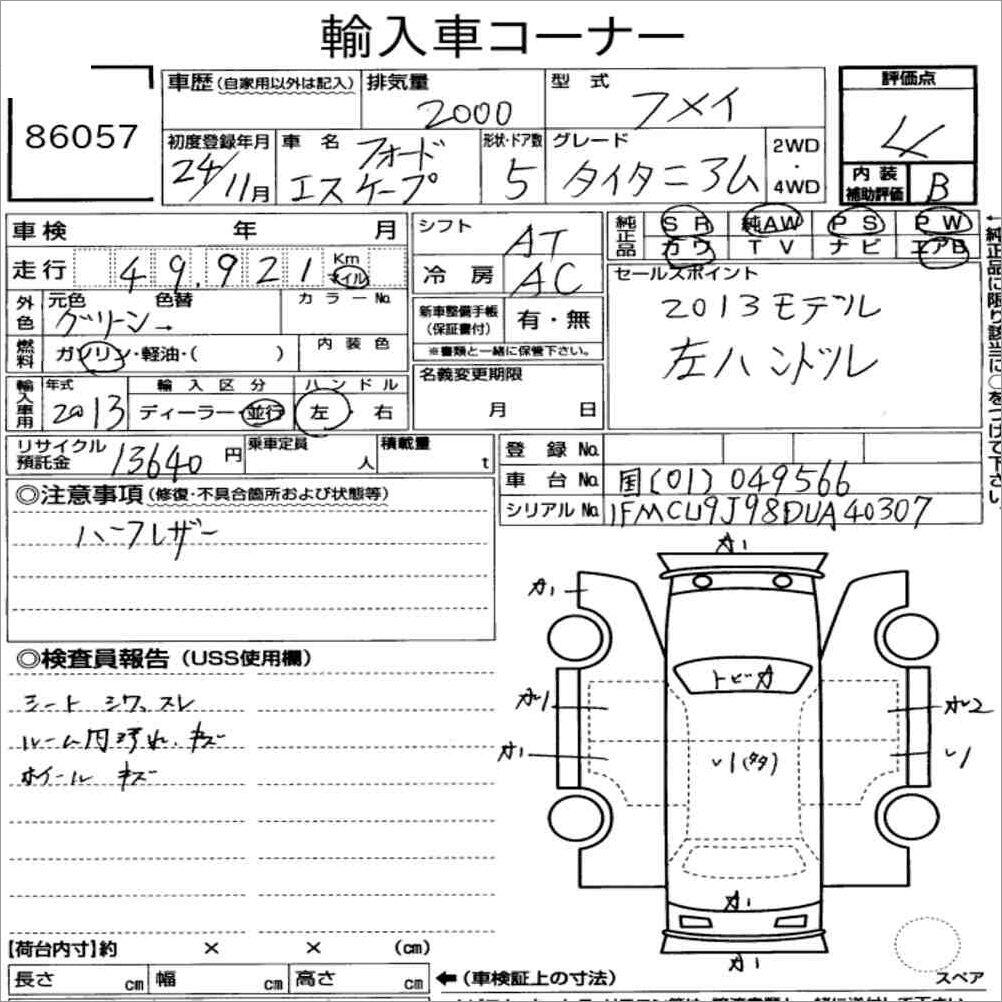 輸入車コーナー
86057
車歴(自家用以外は記入)
排気量 2000
型式 フメイ
評価点 4
初度登録年月 24/11月
車名 フォード エスケープ
形状・ドア数 5
グレード タイタニアム
2WD・4WD
内装補助評価 B
車検 年 月
走行 49,921 Km マイル
シフト AT
冷房 AC
純正品 SR 純AW PS PW
カワ TV ナビ エアB
←純正品に限り該当に○をつけて下さい。
外色 元色 色替 カラーNo.
グリーン→
燃料 ガソリン・軽油・( )
内装色
新車整備手帳(保証書付) 有・無
※書類と一緒に保管下さい。
セールスポイント
2013モデル
左ハンドル
輸入車用 年式 2013
輸入区分 ディーラー・並行
ハンドル 左・右
名義変更期限
月 日
リサイクル預託金 13640円
乗車定員 人
積載量 t
登録No.
車台No. 国(01)049566
シリアルNo. 1FMCU9J98DUA40307
◎注意事項(修復・不具合箇所および状態等)
ハーフレザー
◎検査員報告(USS使用欄)
シート シワ、スレ
ルーム内汚れ、キズ
ホイール キズ
カ1
カ1
トビカ
カ1
カ2
カ1
い1(タタ)
い1
カ1
カ1
【荷台内寸】約 × × (cm)
長さ cm 幅 cm 高さ cm ←(車検証上の寸法)
スペア